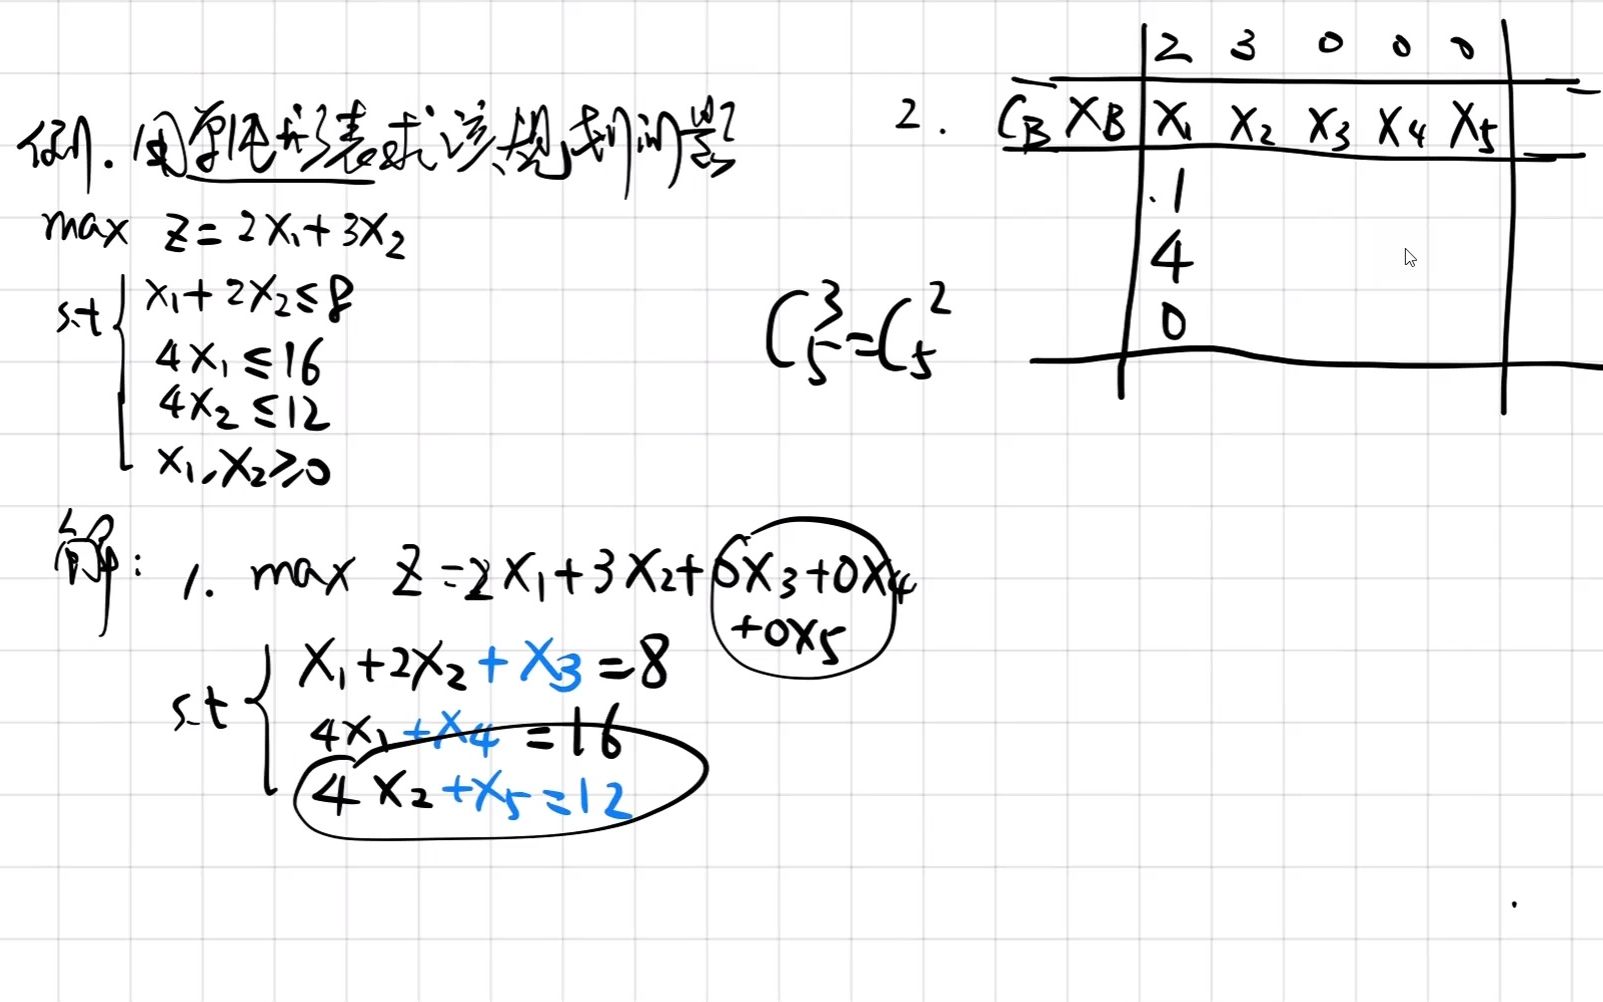 例. 用单纯形表求该规划问题
max z = 2x₁ + 3x₂
s.t { x₁ + 2x₂ ≤ 8
4x₁ ≤ 16
4x₂ ≤ 12
x₁, x₂ ≥ 0
解: 1. max z = 2x₁ + 3x₂ + 0x₃ + 0x₄
+ 0x₅
s.t { x₁ + 2x₂ + x₃ = 8
4x₁ + x₄ = 16
4x₂ + x₅ = 12
C₅³ = C₅²
2 3 0 0 0
2. C_B X_B x₁ x₂ x₃ x₄ x₅
1
4
0